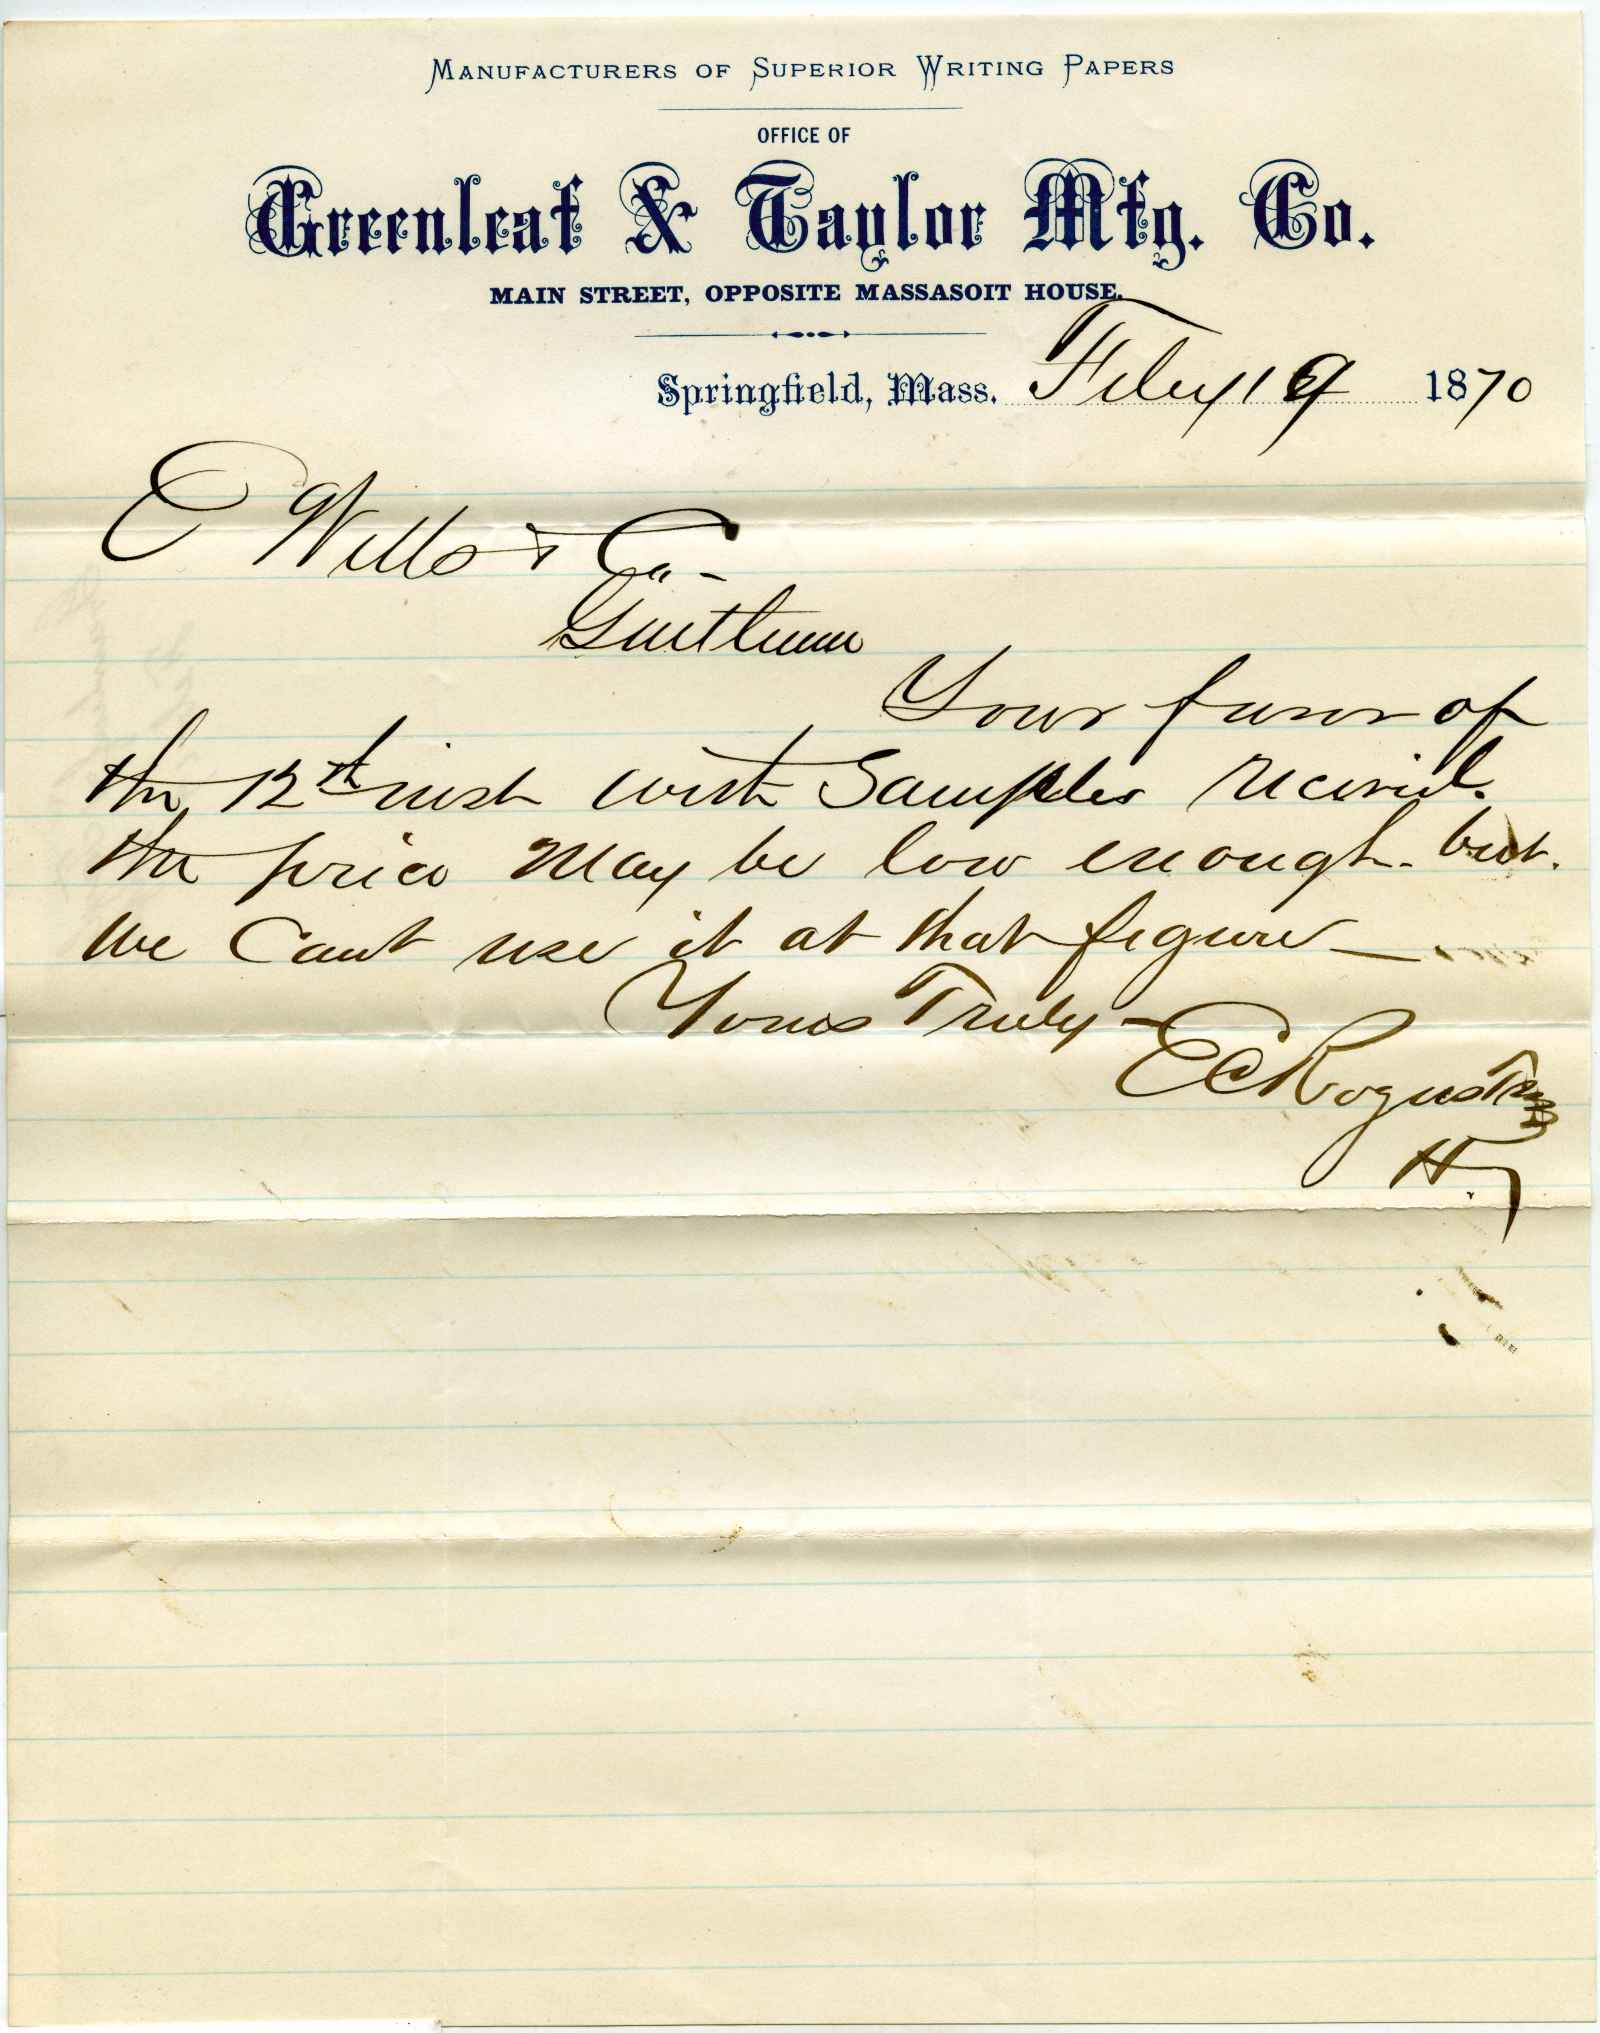 MANUFACTURERS OF SUPERIOR WRITING PAPERS
OFFICE OF
Greenleaf & Taylor Mfg. Co.
MAIN STREET, OPPOSITE MASSASOIT HOUSE.
Springfield, Mass. Feby 19 1870
E Wells & Co-
Gentlemen
Your favor of
the 12th inst with Samples received.
the price May be low enough. but.
we Cant use it at that figure—
Yours Truly-
EC Rogers Treas
H.